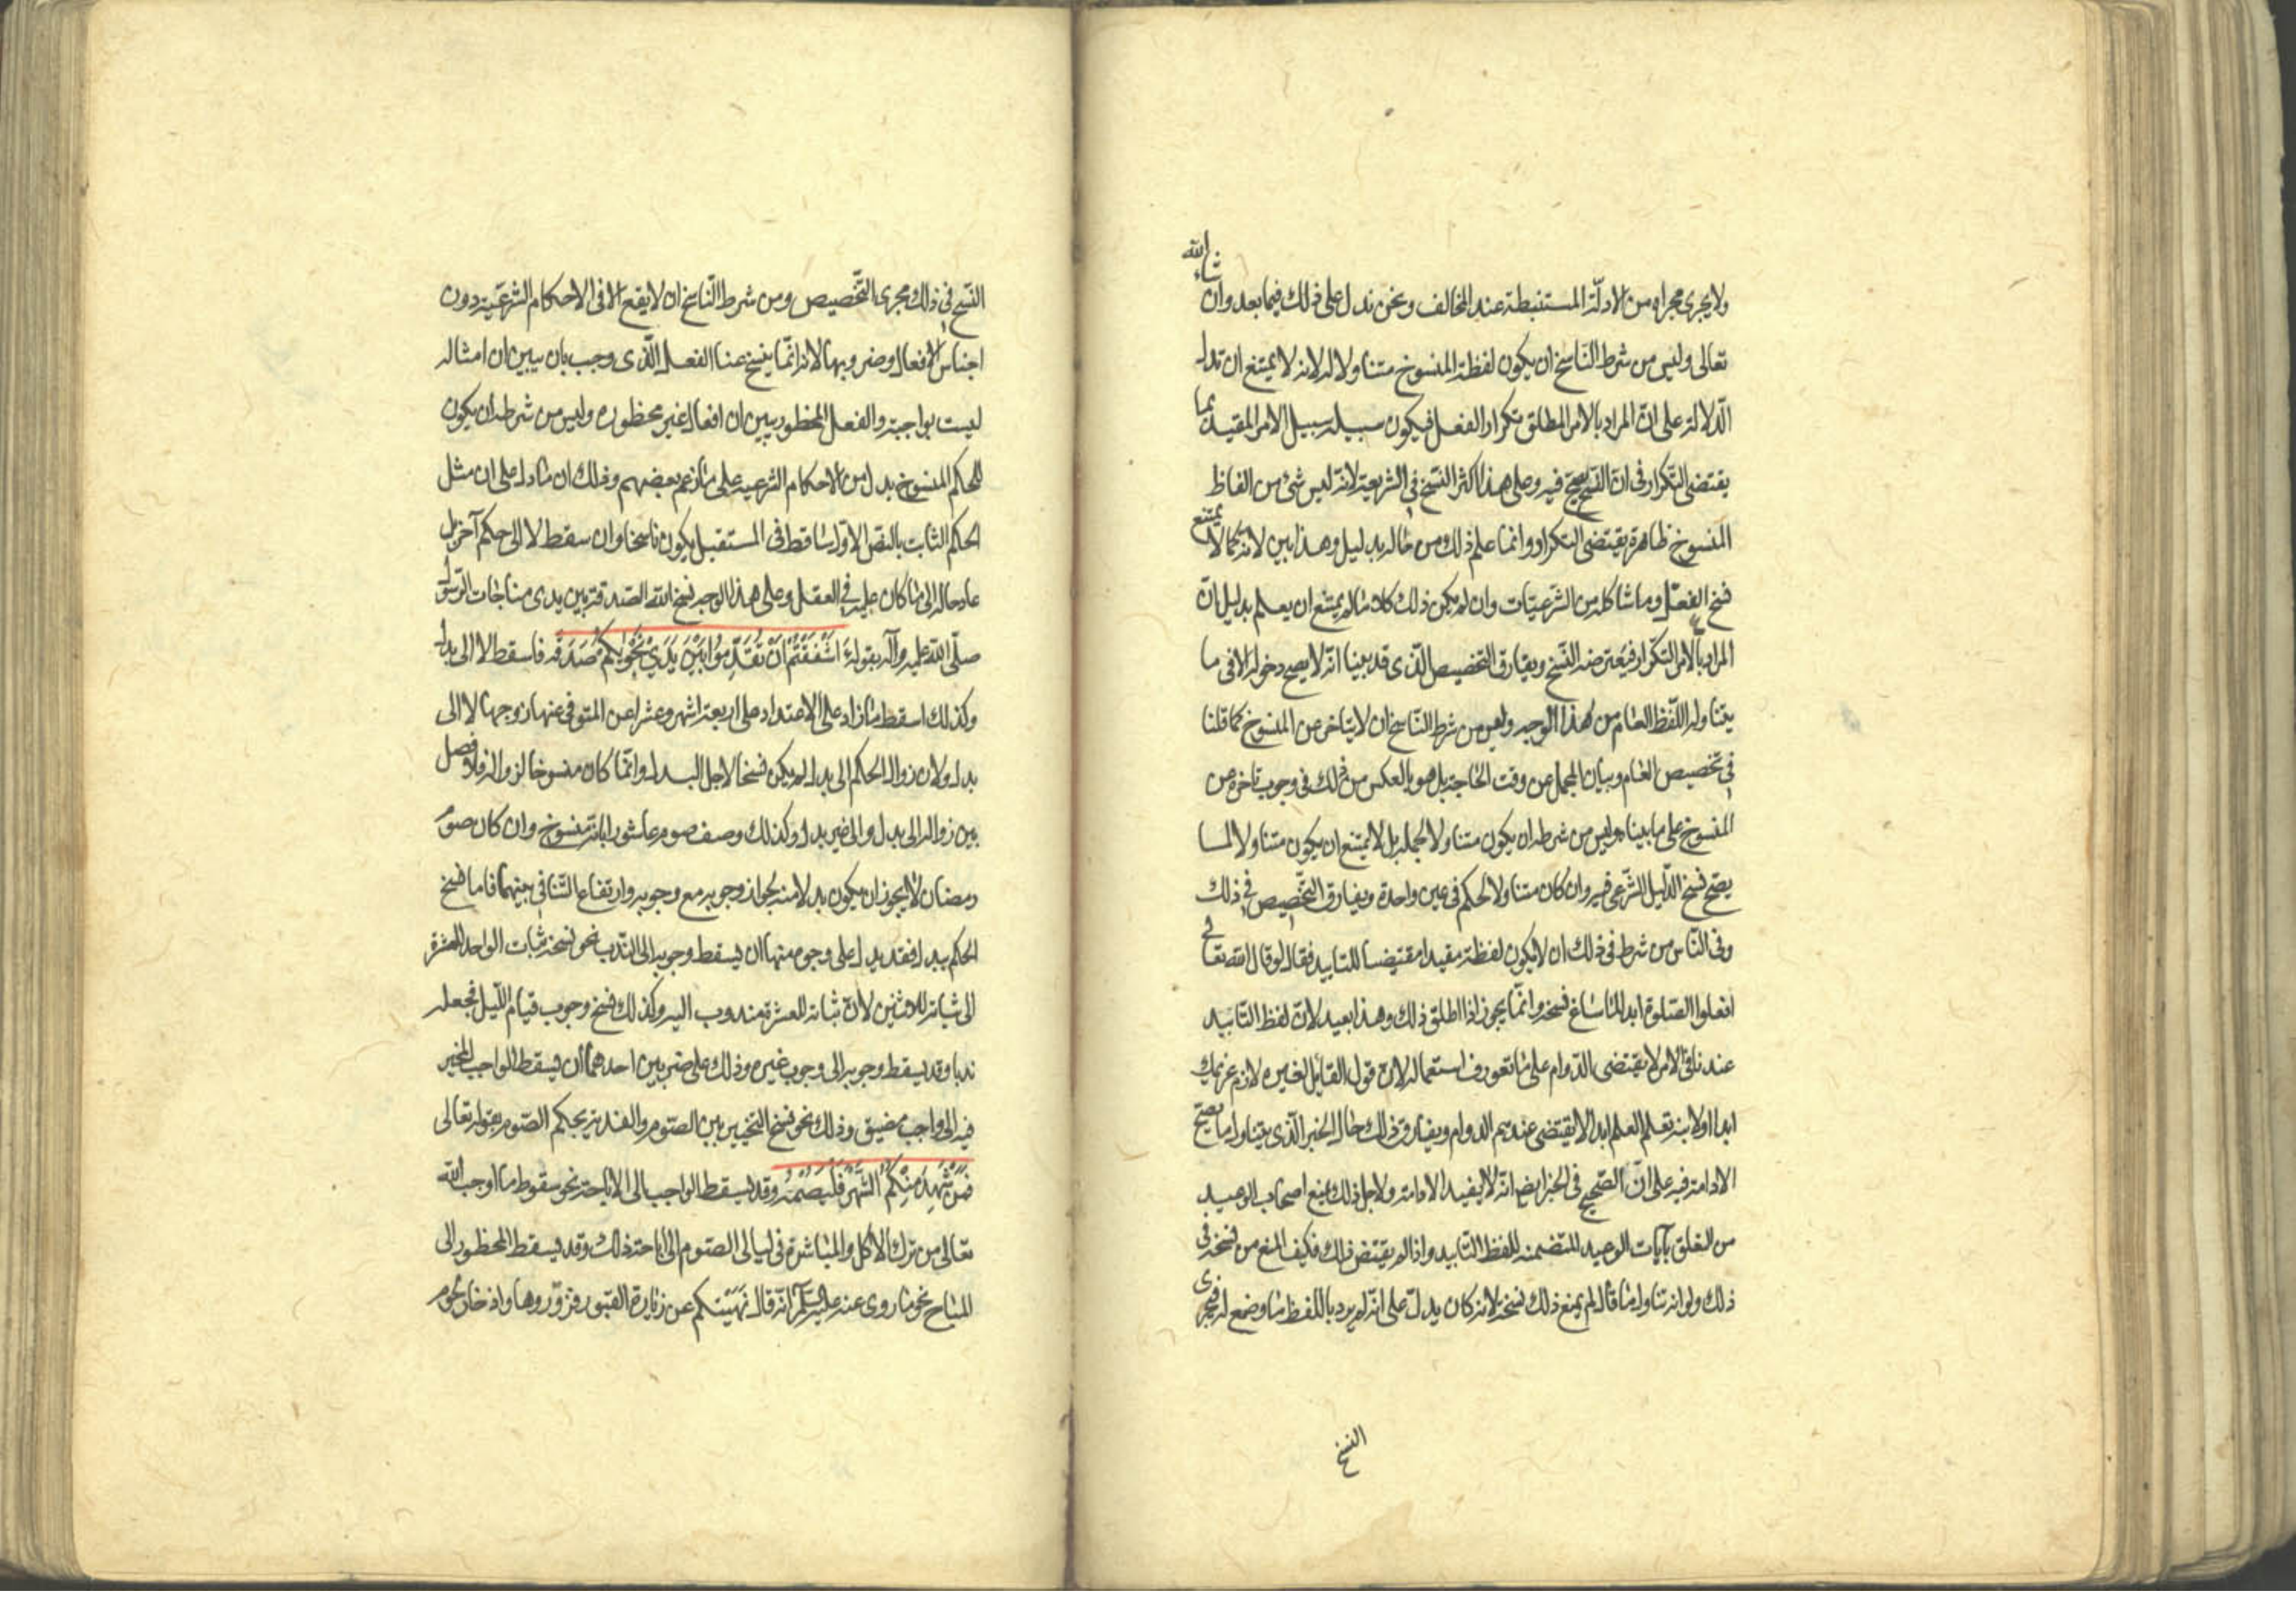 ولا يجرى مجراه من الادلّة المستنبطة عند المخالف ونحن ندل على ذلك فيما بعد وان شاء الله
تعالى وليس من شرط الناسخ ان يكون لفظة المنسوخ متناولا له لانه لا يمتنع ان تدل
الدلالة على انّ المراد بالامر المطلق تكرار الفعل فيكون سبيله سبيل الامر المقيد بما
يقتضى التكرار فى انّ النسخ يصح فيه وعلى هذا اكثر النسخ فى الشريعة لانه ليس شئ من الفاظ
المنسوخ ظاهره يقتضى التكرار وانما علم ذلك من حاله بدليل وهذا بين لانه كما لا يمتنع
نسخ الفعل وما شاكله من الشرعيّات وان لم يكن ذلك كلاما لم يمتنع ان يعلم بدليل انّ
المراد بالامر التكرار فيعترضه النسخ ويفارق التخصيص الذى قد بينا انه لا يصح دخوله الا فى ما
يتناوله اللّفظ العام من هذا الوجه وليس من شرط النّاسخ ان لا يتاخر عن المنسوخ كما قلنا
فى تخصيص العام وبيان المجمل عن وقت الحاجة بل هو بالعكس من ذلك فى وجوب تاخره عن
المنسوخ على ما بيناه وليس من شرطه ان يكون متناولا لجملة بل لا يمتنع ان يكون متناولا لما
يصح نسخ الدّليل الشّرعى فيه وان كان متناولا لحكم فى عين واحدة ويفارق التخصيص فى ذلك
وفى النّاس من شرط فى ذلك ان لا يكون لفظة مقيدا مقتضيا للتابيد فقال لو قال الله تعالى
افعلوا الصّلوة ابدا لما ساغ نسخه وانّما يجوز اذا اطلق ذلك وهذا بعيد لانّ لفظ التّابيد
عند تلقى الامر لا يقتضى الدّوام على ما تعورف استعماله لانّ قول القايل لغيره لازم غريمك
ابدا او لابنه تعلم العلم ابدا لا يقتضى عندهم الدوام ويفارق ذلك حال الخبر الّذى يتناول ما يصح
الادامة فيه على انّ الصّحيح فى الخبر ايضا انّه لا يفيد الادامة ولاجل ذلك يمنع اصحاب الوعيد
من التعلق بآيات الوعيد المتضمنه للفظ التّابيد واذا لم يقتض ذلك فكيف المنع من نسخه فى
ذلك ولو انه تناول ما قاله لم يمنع ذلك نسخه لانه كان يدلّ على انّه لم يرد باللفظ ما وضع له فجرى
النسخ
النّسخ فى ذلك مجرى التّخصيص ومن شرط النّاسخ ان لا يقع الا فى الاحكام الشّرعيّة دون
اجناس الافعال وضروبها لانه انّما ينسخ عنا الفعل الّذى وجب بان يبين ان امثاله
ليست بواجبة والفعل المحظور يبين ان افعاله غير محظوره وليس من شرطه ان يكون
للحكم المنسوخ بدل من الاحكام الشرعيه على ما زعم بعضهم وذلك ان ما دل على ان مثل
الحكم الثابت بالنص الاول ساقط فى المستقبل يكون ناسخا وان سقط لا الى حكم آخر بل
عاد حاله الى ما كان عليه فى العقل وعلى هذا الوجه نسخ الله الصدقة بين يدى مناجات الرّسول
صلّى الله عليه وآله بقوله ءَاشْفَقْتُمْ اَنْ تُقَدِّمُوا بَيْنَ يَدَيْ نَجْوٰيكُمْ صَدَقَة فاسقط لا الى بدل
وكذلك اسقط ما زاد على الاعتداد على اربعة اشهر وعشرا عن المتوفى عنها زوجها لا الى
بدل ولان زوال الحكم الى بدل لم يكن نسخا لاجل البدل وانّما كان منسوخا لزواله فلا فصل
بين زواله الى بدل والى غير بدل وكذلك وصف صوم عاشورا بانّه منسوخ وان كان صوم
رمضان لا يجوز ان يكون بدلا منه لجواز وجوبه مع وجوبه وارتفاع التّنافى بينهما فاما نسخ
الحكم ببدل فقد يدل على وجوه منها ان يسقط وجوبه الى النّدب نحو نسخه ثبات الواحد للعشرة
الى ثباته للاثنين لانّ ثباته للعشرة مندوب اليه وكذلك نسخ وجوب قيام اللّيل فجعله
ندبا وقد يسقط وجوبه الى وجوب غيره وذلك على ضربين احدهما ان يسقط الواجب المخير
فيه الى واجب مضيق وذلك نحو نسخ التخيير بين الصّوم والفدية بحكم الصّوم بقوله تعالى
فَمَنْ شَهِدَ مِنْكُمُ الشَّهْرَ فَلْيَصُمْهُ وقد يسقط الواجب الى الاباحة نحو سقوط ما اوجب الله
تعالى من ترك الاكل والمباشرة فى ليالى الصّوم الى اباحة ذلك وقد يسقط المحظور الى
المباح نحو ما روى عنه عليه السّلم انّه قال نهيتكم عن زيارة القبور فزوّروها واذخار لحوم